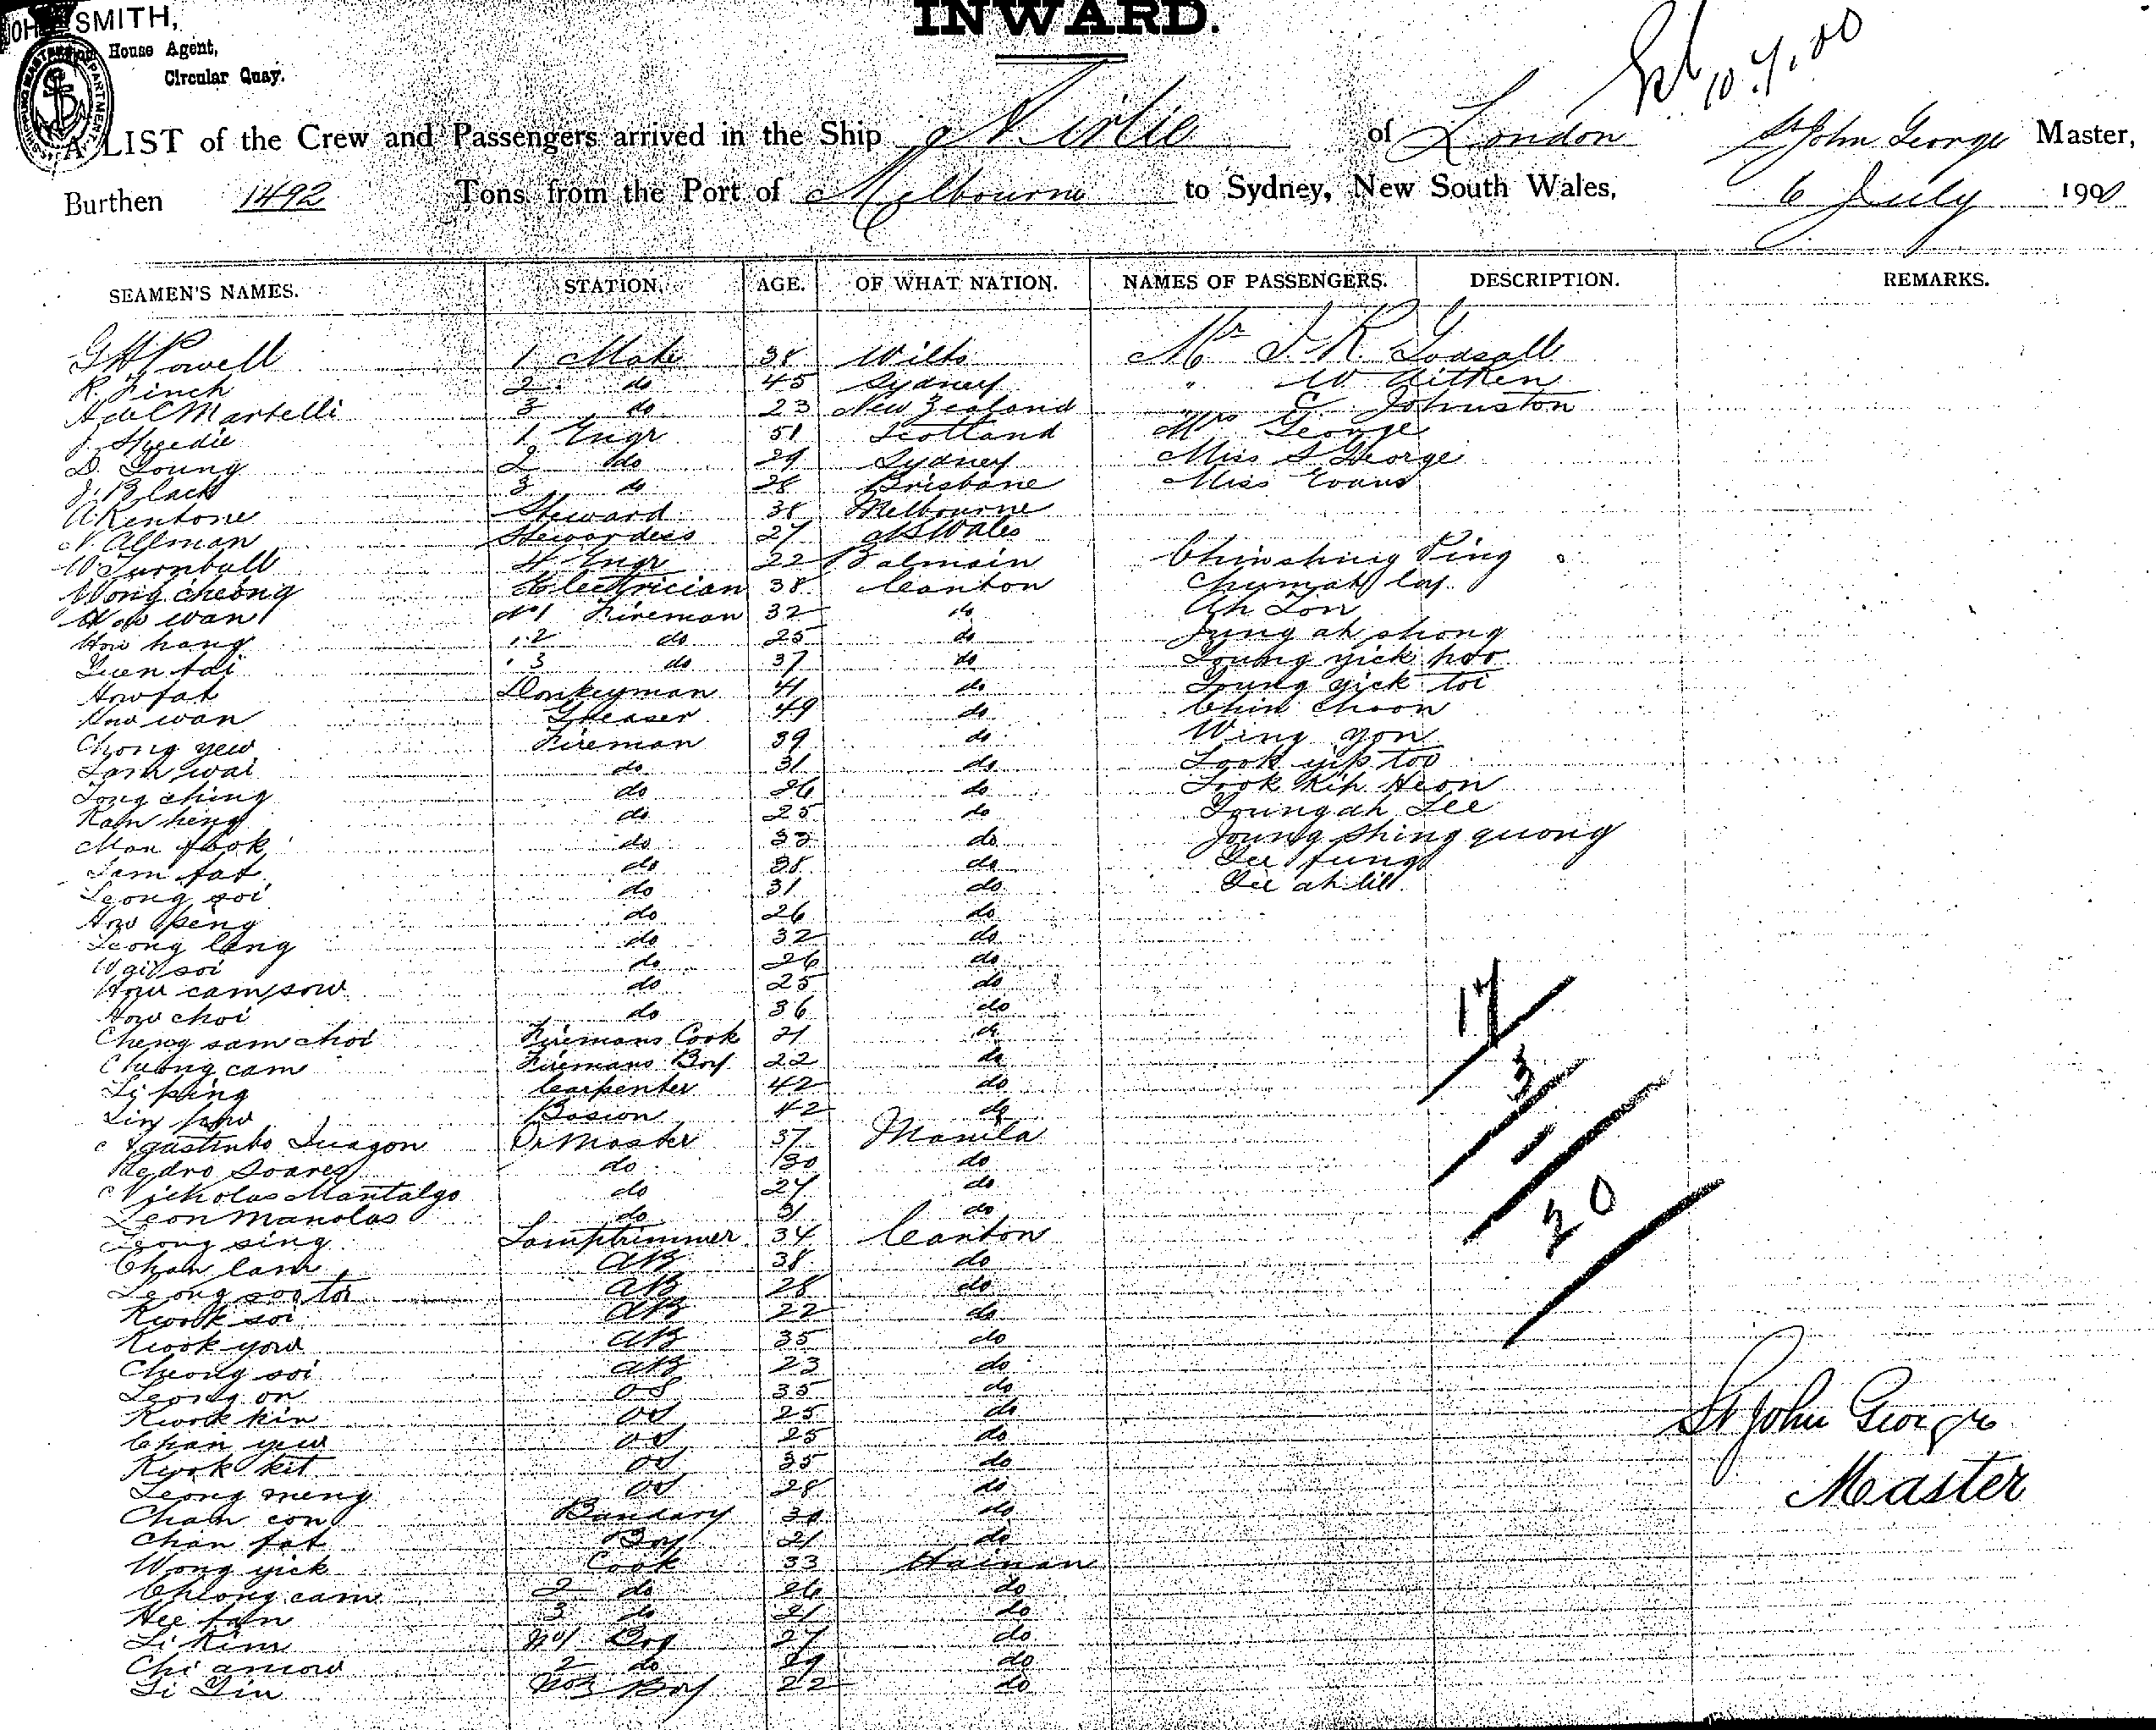 SMITH,
House Agent,
Circular Quay.
INWARD.
10.7.00
A LIST of the Crew and Passengers arrived in the Ship Airlie of London St John George Master,
Burthen 1492 Tons from the Port of Melbourne to Sydney, New South Wales, 6 July 1900
SEAMEN'S NAMES. STATION. AGE. OF WHAT NATION. NAMES OF PASSENGERS. DESCRIPTION. REMARKS.
G H Powell 1 Mate 38 Wilts Mr J. R. Godsall
R. Finch 2 do 45 Sydney " W Aitken
A de C Martelli 3 do 23 New Zealand " C Johnston
J. Speedie 1 Engr 51 Scotland Mrs George
D. Young 2 do 29 Sydney Miss S George
J. Black 3 do 28 Brisbane Miss Evans
A Rentone Steward 38 Melbourne
N. Allman Stewardess 27 N S Wales
W Turnbull 4 Engr 22 Balmain Chinshing Ping
Wong cheong Electrician 38 Canton Chumat loy
wan No 1 Fireman 32 do Ah Lon
How hang " 2 do 25 do Jung ah shong
Yuen tai " 3 do 37 do Young yick hoo
How fat Donkeyman 41 do Young yick toi
How wan Greaser 49 do Chin Choon
Chong yew Fireman 39 do Wing yon
Lam wai do 31 do Look yip too
Tong ching do 26 do Look Kip Heon
Kam heng do 25 do Young ah Lee
Man fook do 33 do Joung Shing quong
Lam fat do 38 do Lee fung
Leong soi do 31 do Lee ah lill
How peng do 26 do
Leong leng do 32 do
Wai soi do 26 do
How cam sow do 25 do
How choi do 36 do 17
Cheng sam choi Firemans Cook 21 do
Cheong cam Firemans Boy 22 do 3
Li ping Carpenter 42 do
Lin how Bosion 42 do
Agustinto Tuagon Qr Master 37 Manila
Pedro Soares do 30 do
Nicholas Mantalgo do 27 do 20
Leon Manolas do 31 do
Leong sing Lamptrimmer 34 Canton
Chan lam AB 38 do
Leong soo toi AB 28 do
Kwok soi AB 22 do
Kwok yow AB 35 do
Cheong soi AB 23 do
Leong on OS 35 do
Kwok kin OS 25 do St John George
Chan yew OS 25 do
Kwok kit OS 35 do
Leong meng OS 28 do Master
Cham con Bandary 30 do
Chan fat Boy 21 do
Wong yick Cook 33 Hainan
Cheong cam 2 do 26 do
Hee fan 3 do 21 do
Li Kim No 1 Boy 27 do
Chi amow 2 do 29 do
Li Yin No 3 Boy 22 do